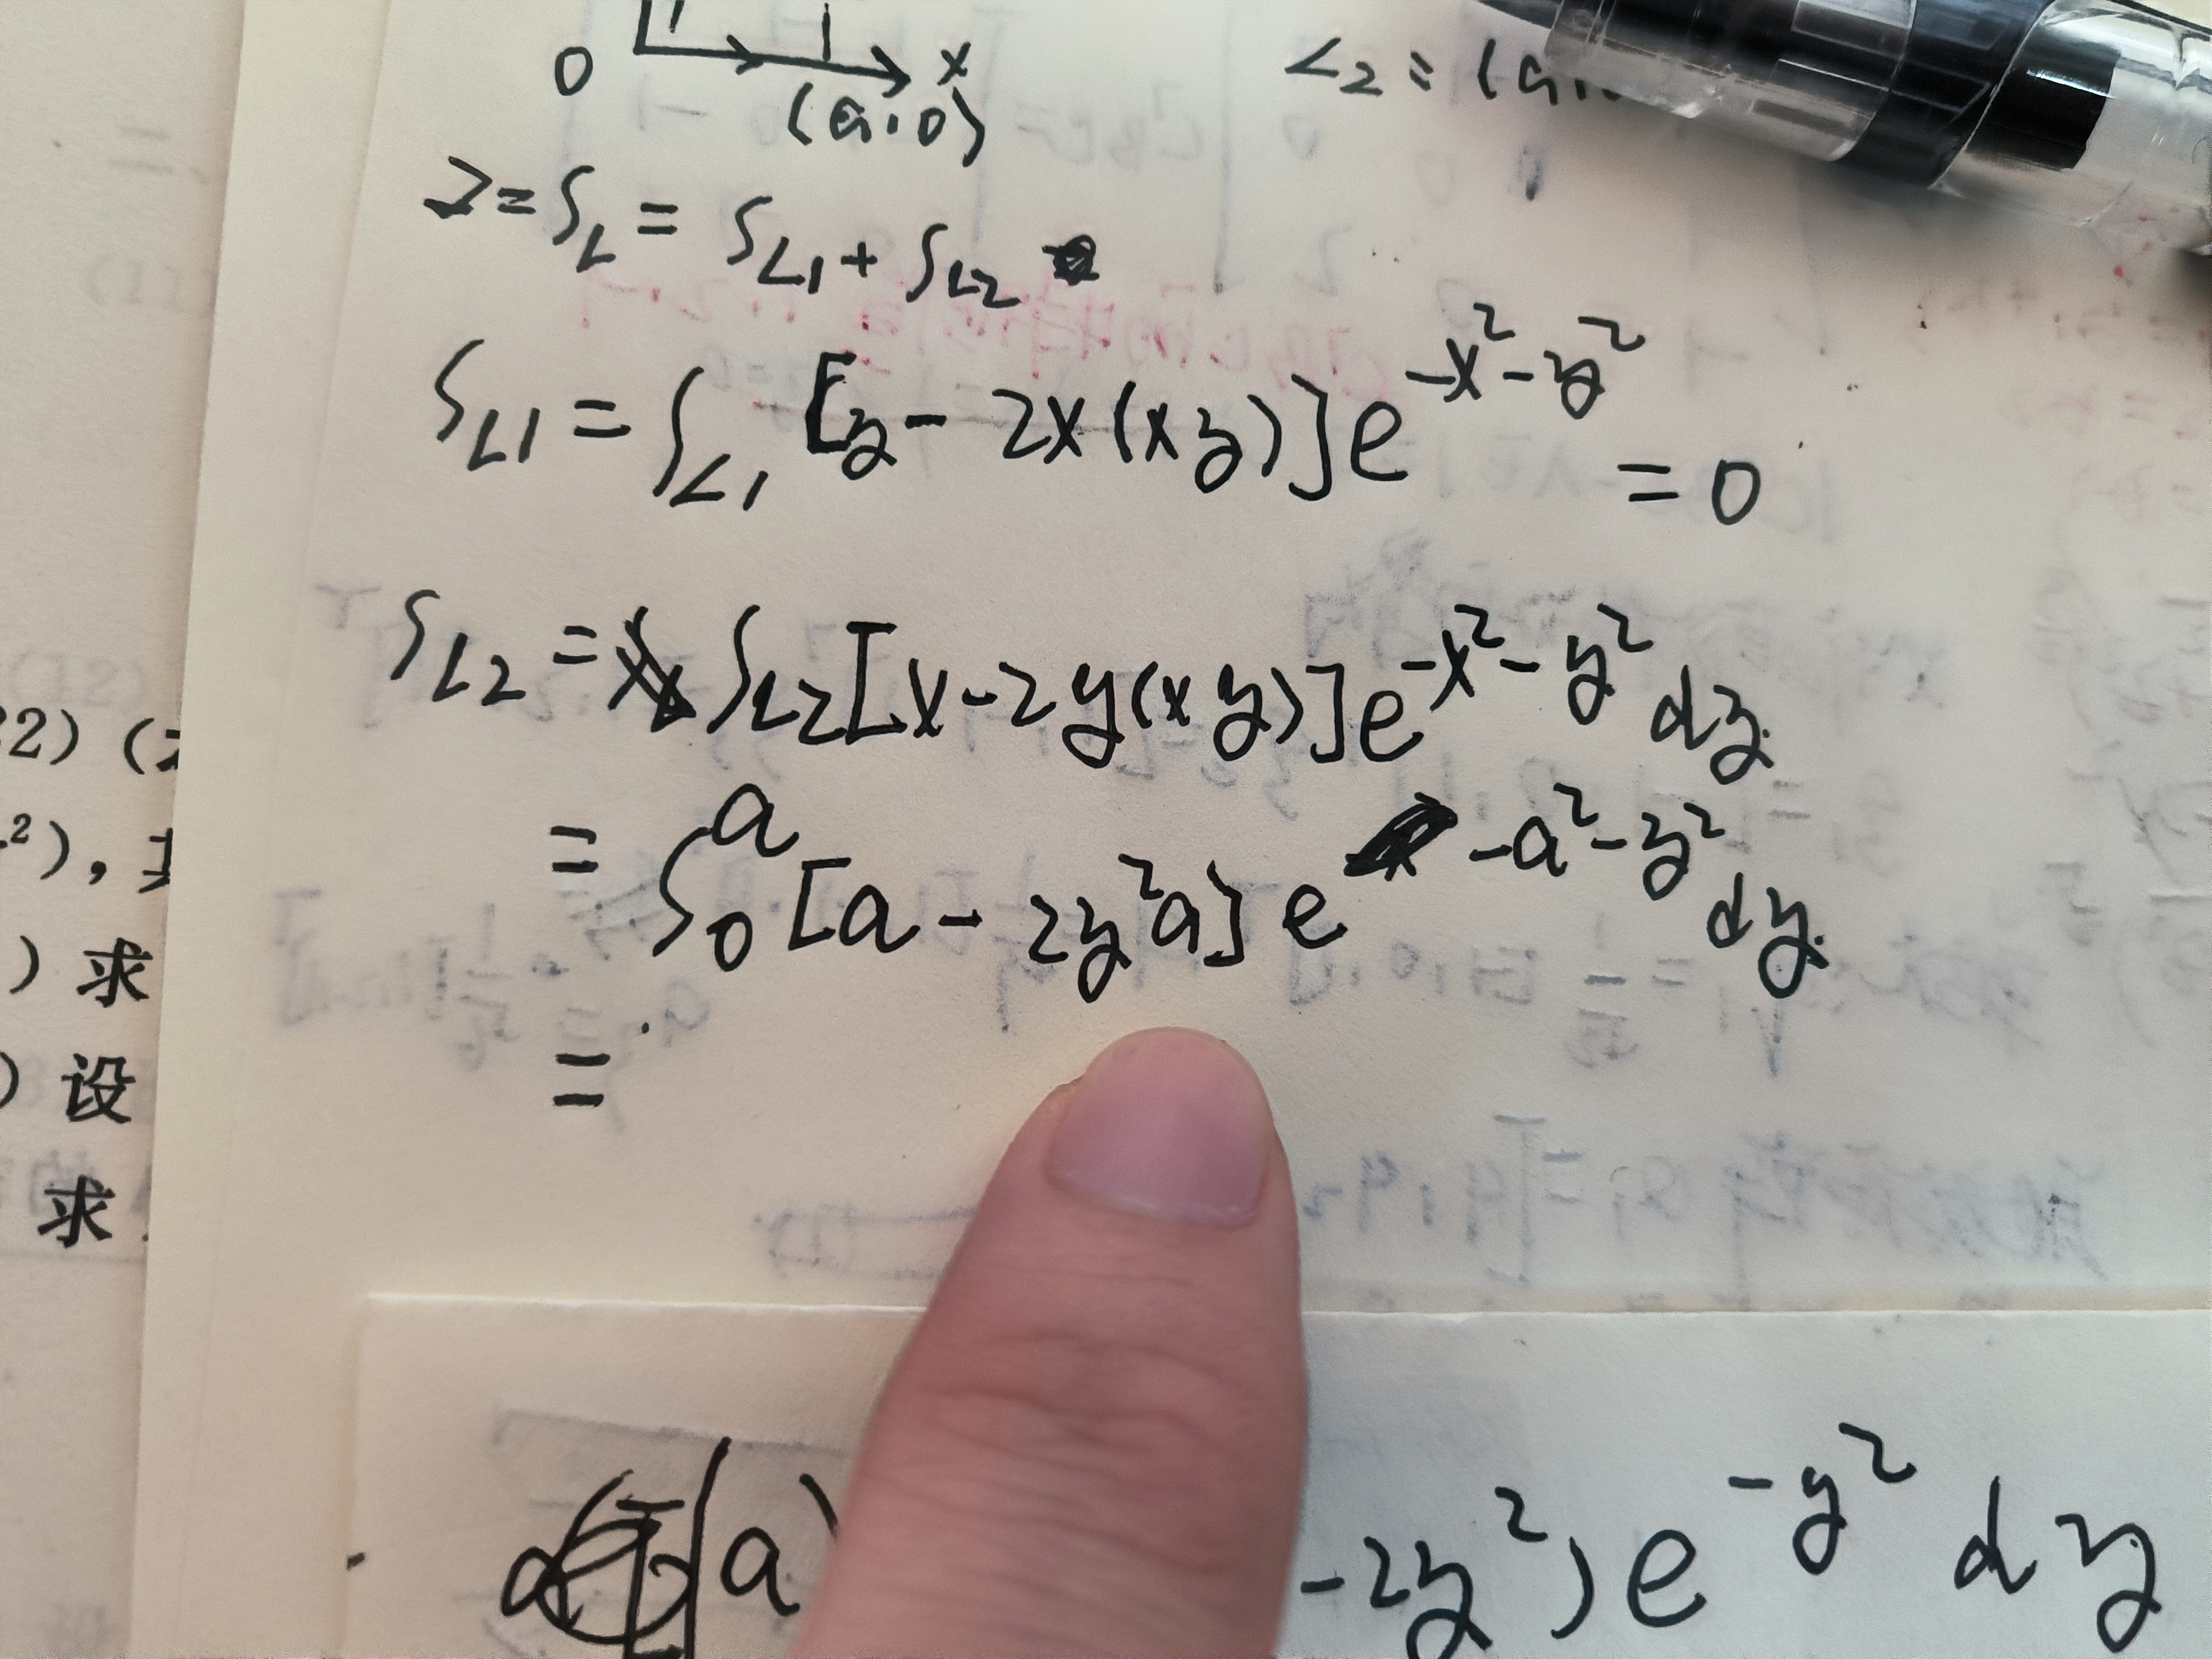 0 x L₂ : (a,
(a,0)
I = ∫_L = ∫_{L1} + ∫_{L2}
∫_{L1} = ∫_{L1} [y - 2x(xy)] e^{-x²-y²} = 0
∫_{L2} = ∫_{L2} [x - 2y(xy)] e^{-x²-y²} dy
= ∫₀^a [a - 2y²a] e^{-a²-y²} dy
=
2) (
²),
) 求
) 设
求
a
-2y²) e^{-y²} dy